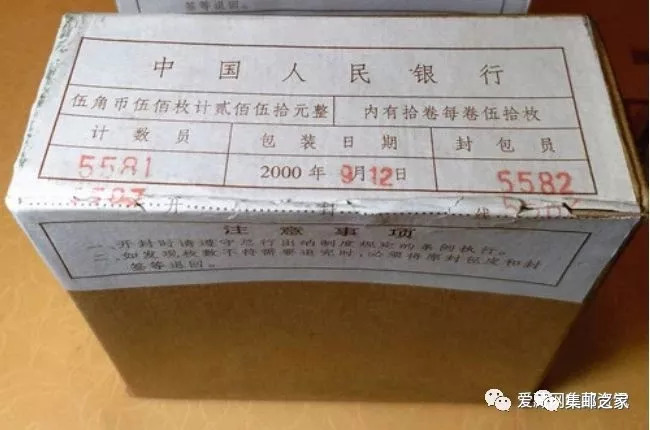 签等退回。
中国人民银行
伍角币伍佰枚计贰佰伍拾元整 内有拾卷每卷伍拾枚
计数员 包装日期 封包员
5581 2000年9月12日 5582
开 封 线
注意事项
一、开封时请遵守总行出纳制度规定的条例执行。
二、如发现枚数不符需要追究时，必须将原封包皮和封
签等退回。
集邮之家